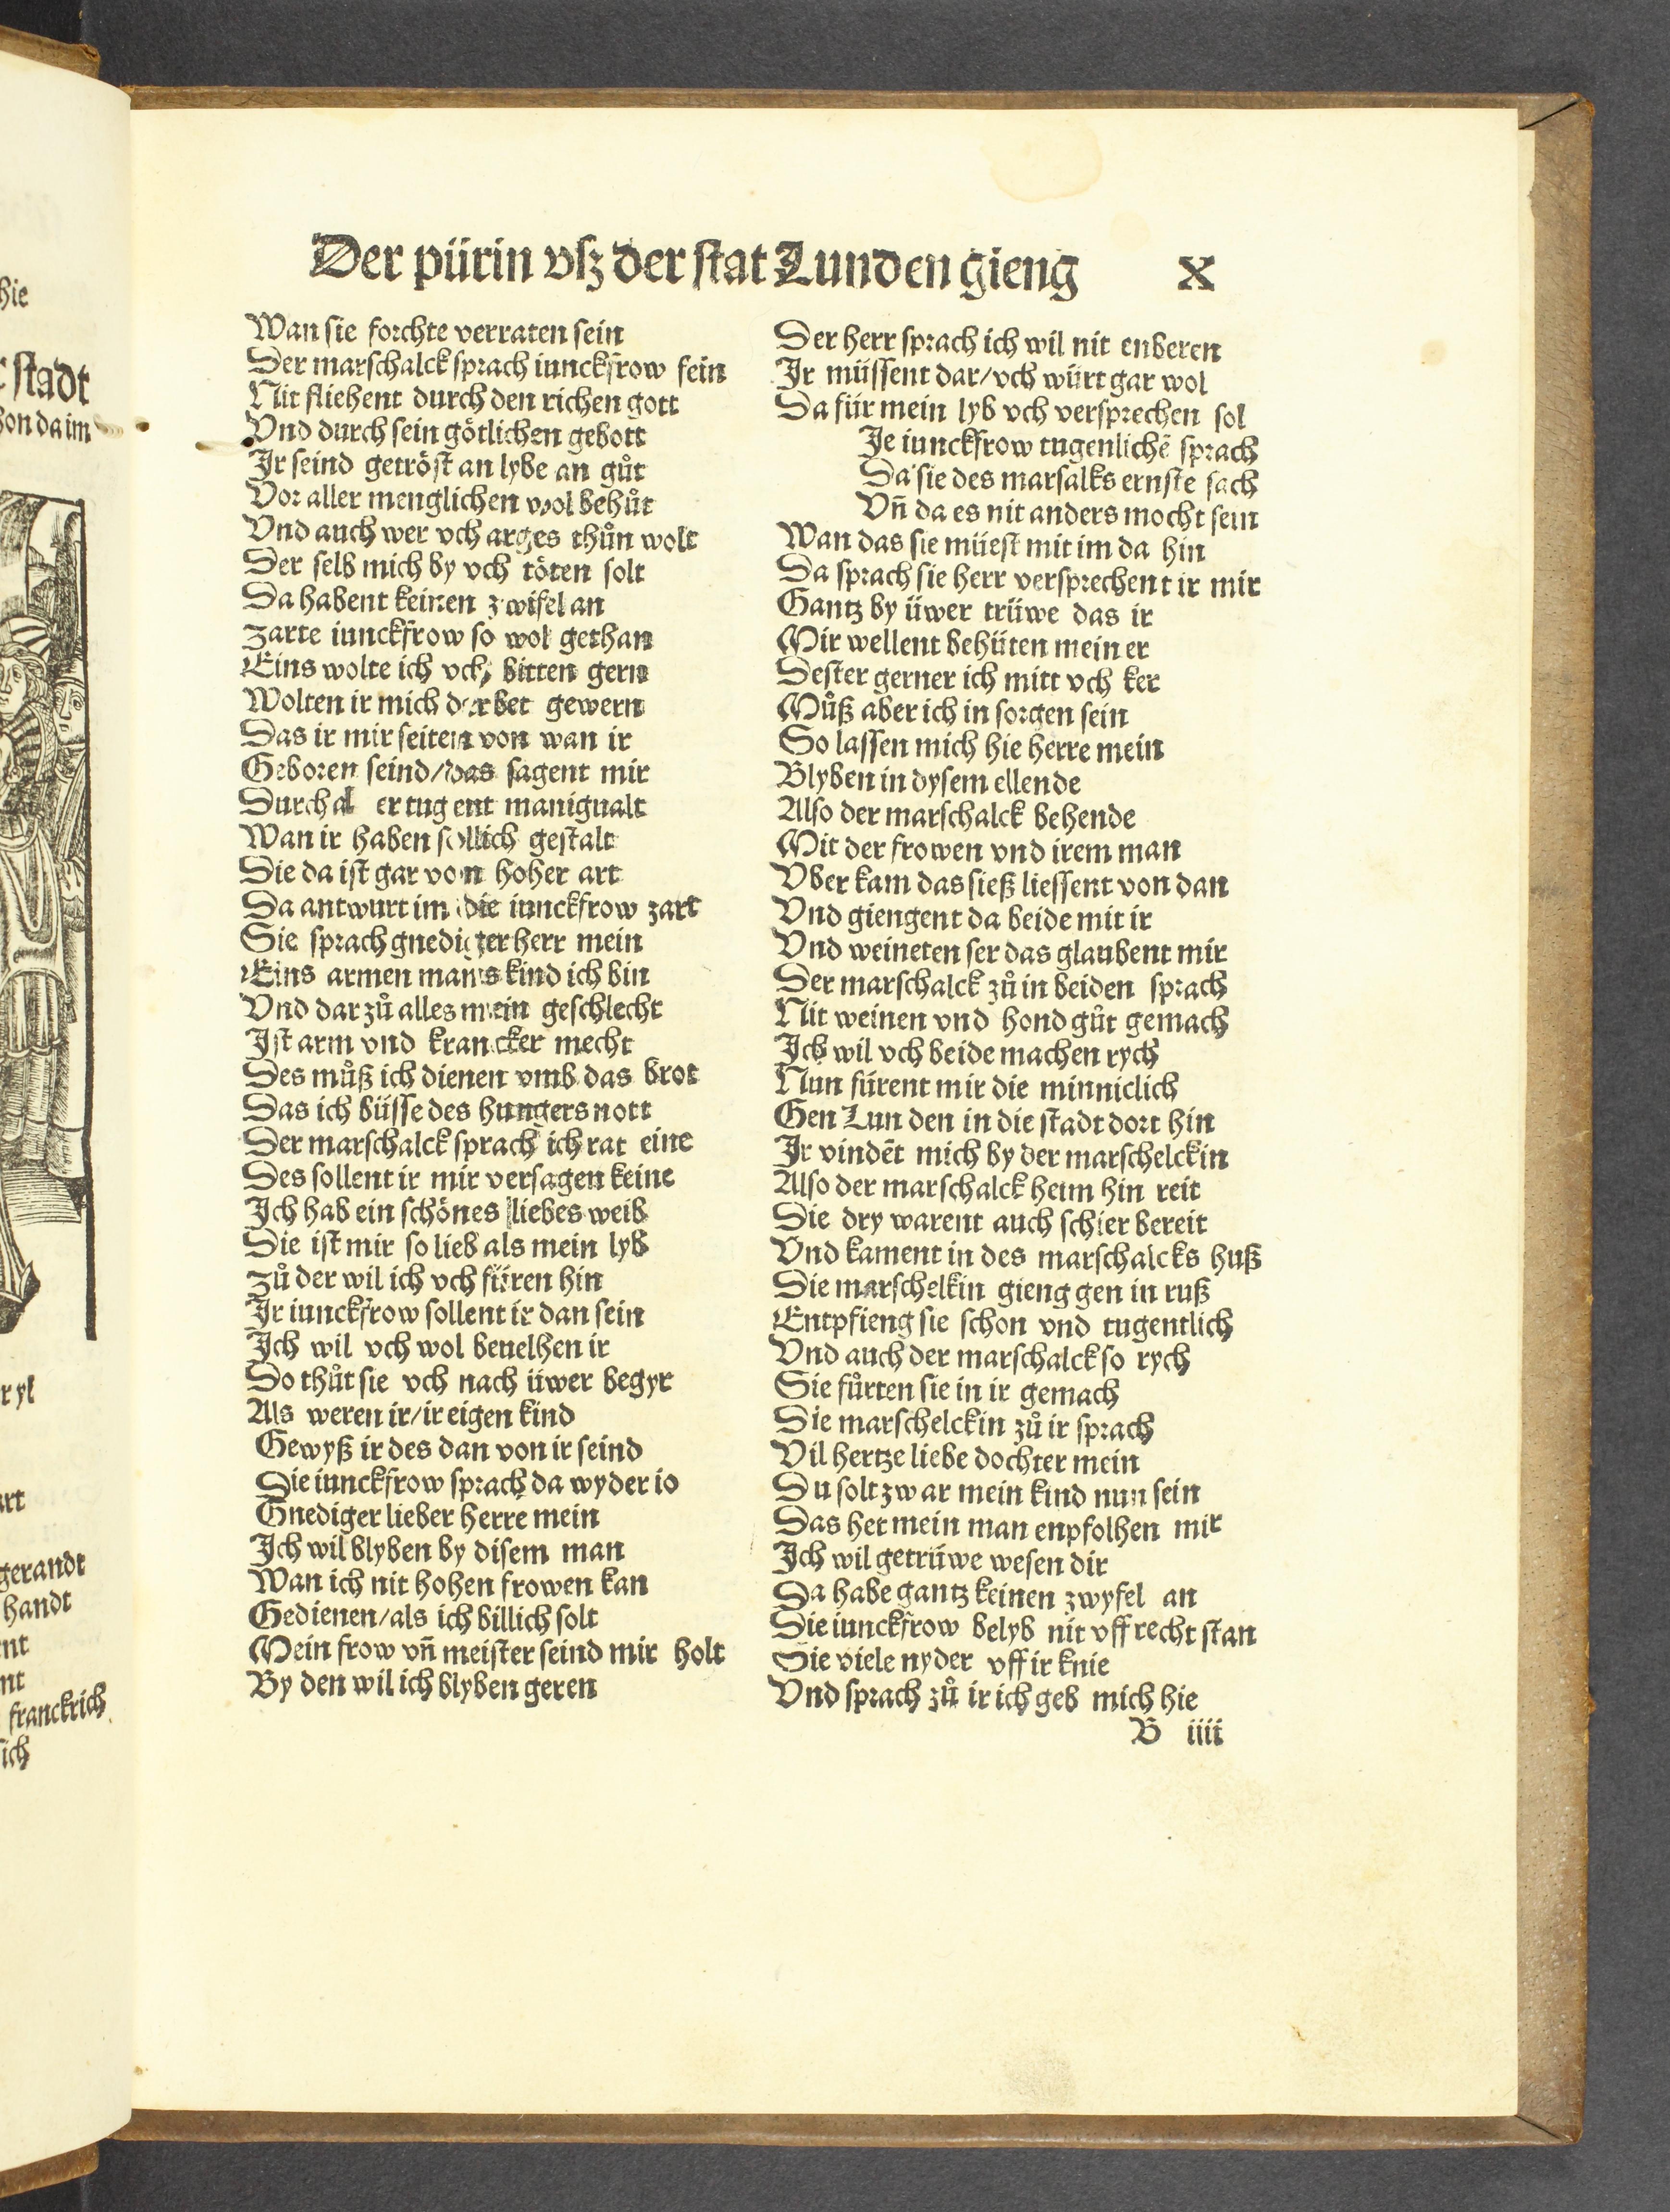 Der pürin vſz der ſtat Lunden gieng X
Wan ſie forchte verraten ſein
Der marſchalck ſprach iunckfrow fein
Nit fliehent durch den richen gott
Vnd durch ſein götlichen gebott
Ir ſeind getröſt an lybe an gůt
Vor aller menglichen wol behůt
Vnd auch wer vch arges thůn wolt
Der ſelb mich by vch töten ſolt
Da habent keinen zwifel an
Zarte iunckfrow ſo wol gethan
Eins wolte ich vch bitten gern
Wolten ir mich der bet gewern
Das ir mir ſeiten von wan ir
Geboren ſeind/das ſagent mir
Durch al er tugent manigualt
Wan ir haben ſollich geſtalt
Die da iſt gar von hoher art
Da antwurt im die iunckfrow zart
Sie ſprach gnediger herr mein
Eins armen mans kind ich bin
Vnd dar zů alles mein geſchlecht
Iſt arm vnd krancker mecht
Des můß ich dienen vmb das brot
Das ich büſſe des hungers nott
Der marſchalck ſprach ich rat eine
Des ſollent ir mir verſagen keine
Ich hab ein ſchönes liebes weib
Die iſt mir ſo lieb als mein lyb
Zů der wil ich vch füren hin
Ir iunckfrow ſollent ir dan ſein
Ich wil vch wol beuelhen ir
Do thůt ſie vch nach üwer begyr
Als weren ir/ir eigen kind
Gewyß ir des dan von ir ſeind
Die iunckfrow ſprach da wyder io
Gnediger lieber herre mein
Ich wil blyben by diſem man
Wan ich nit hohen frowen kan
Gedienen/als ich billich ſolt
Mein frow vñ meiſter ſeind mir holt
By den wil ich blyben geren
Der herr ſprach ich wil nit enberen
Ir müſſent dar/vch würt gar wol
Da für mein lyb vch verſprechen ſol
Ie iunckfrow tugenlichē ſprach
Da ſie des marſalks ernſte ſach
Vñ da es nit anders mocht ſein
Wan das ſie müeſt mit im da hin
Da ſprach ſie herr verſprechent ir mir
Gantz by üwer trüwe das ir
Mir wellent behüten mein er
Deſter gerner ich mitt vch ker
Můß aber ich in ſorgen ſein
So laſſen mich hie herre mein
Blyben in dyſem ellende
Alſo der marſchalck behende
Mit der frowen vnd irem man
Vber kam das ſieß lieſſent von dan
Vnd giengent da beide mit ir
Vnd weineten ſer das glaubent mir
Der marſchalck zů in beiden ſprach
Nit weinen vnd hond gůt gemach
Ich wil vch beide machen rych
Nun fürent mir die minniclich
Gen Lun den in die ſtadt dort hin
Ir vindēt mich by der marſchelckin
Alſo der marſchalck heim hin reit
Die dry warent auch ſchier bereit
Vnd kament in des marſchalcks huß
Die marſchelkin gieng gen in ruß
Entpfieng ſie ſchon vnd tugentlich
Vnd auch der marſchalck ſo rych
Sie fůrten ſie in ir gemach
Die marſchelckin zů ir ſprach
Vil hertze liebe dochter mein
Du ſolt zwar mein kind nun ſein
Das het mein man enpfolhen mir
Ich wil getrüwe weſen dir
Da habe gantz keinen zwyfel an
Die iunckfrow belyb nit vff recht ſtan
Sie viele nyder vff ir knie
Vnd ſprach zů ir ich geb mich hie
B iiii
hie
ſtadt
on da im
r yl
art
gerandt
handt
franckrich